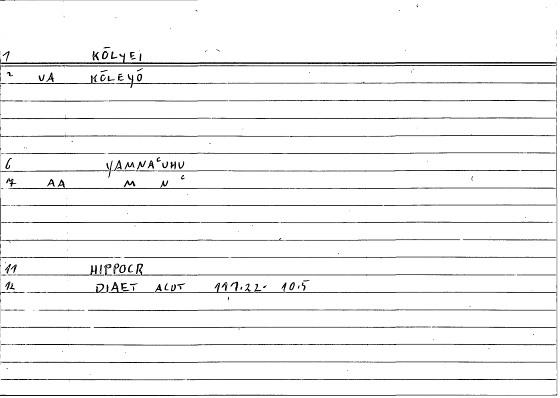 1 KŌLYEI
2 UA KŌLEYŌ
6 YAMNAᶜUHU
7 AA M Nᶜ
11 HIPPOCR
12 DIAET ACUT 117.22- 10.5